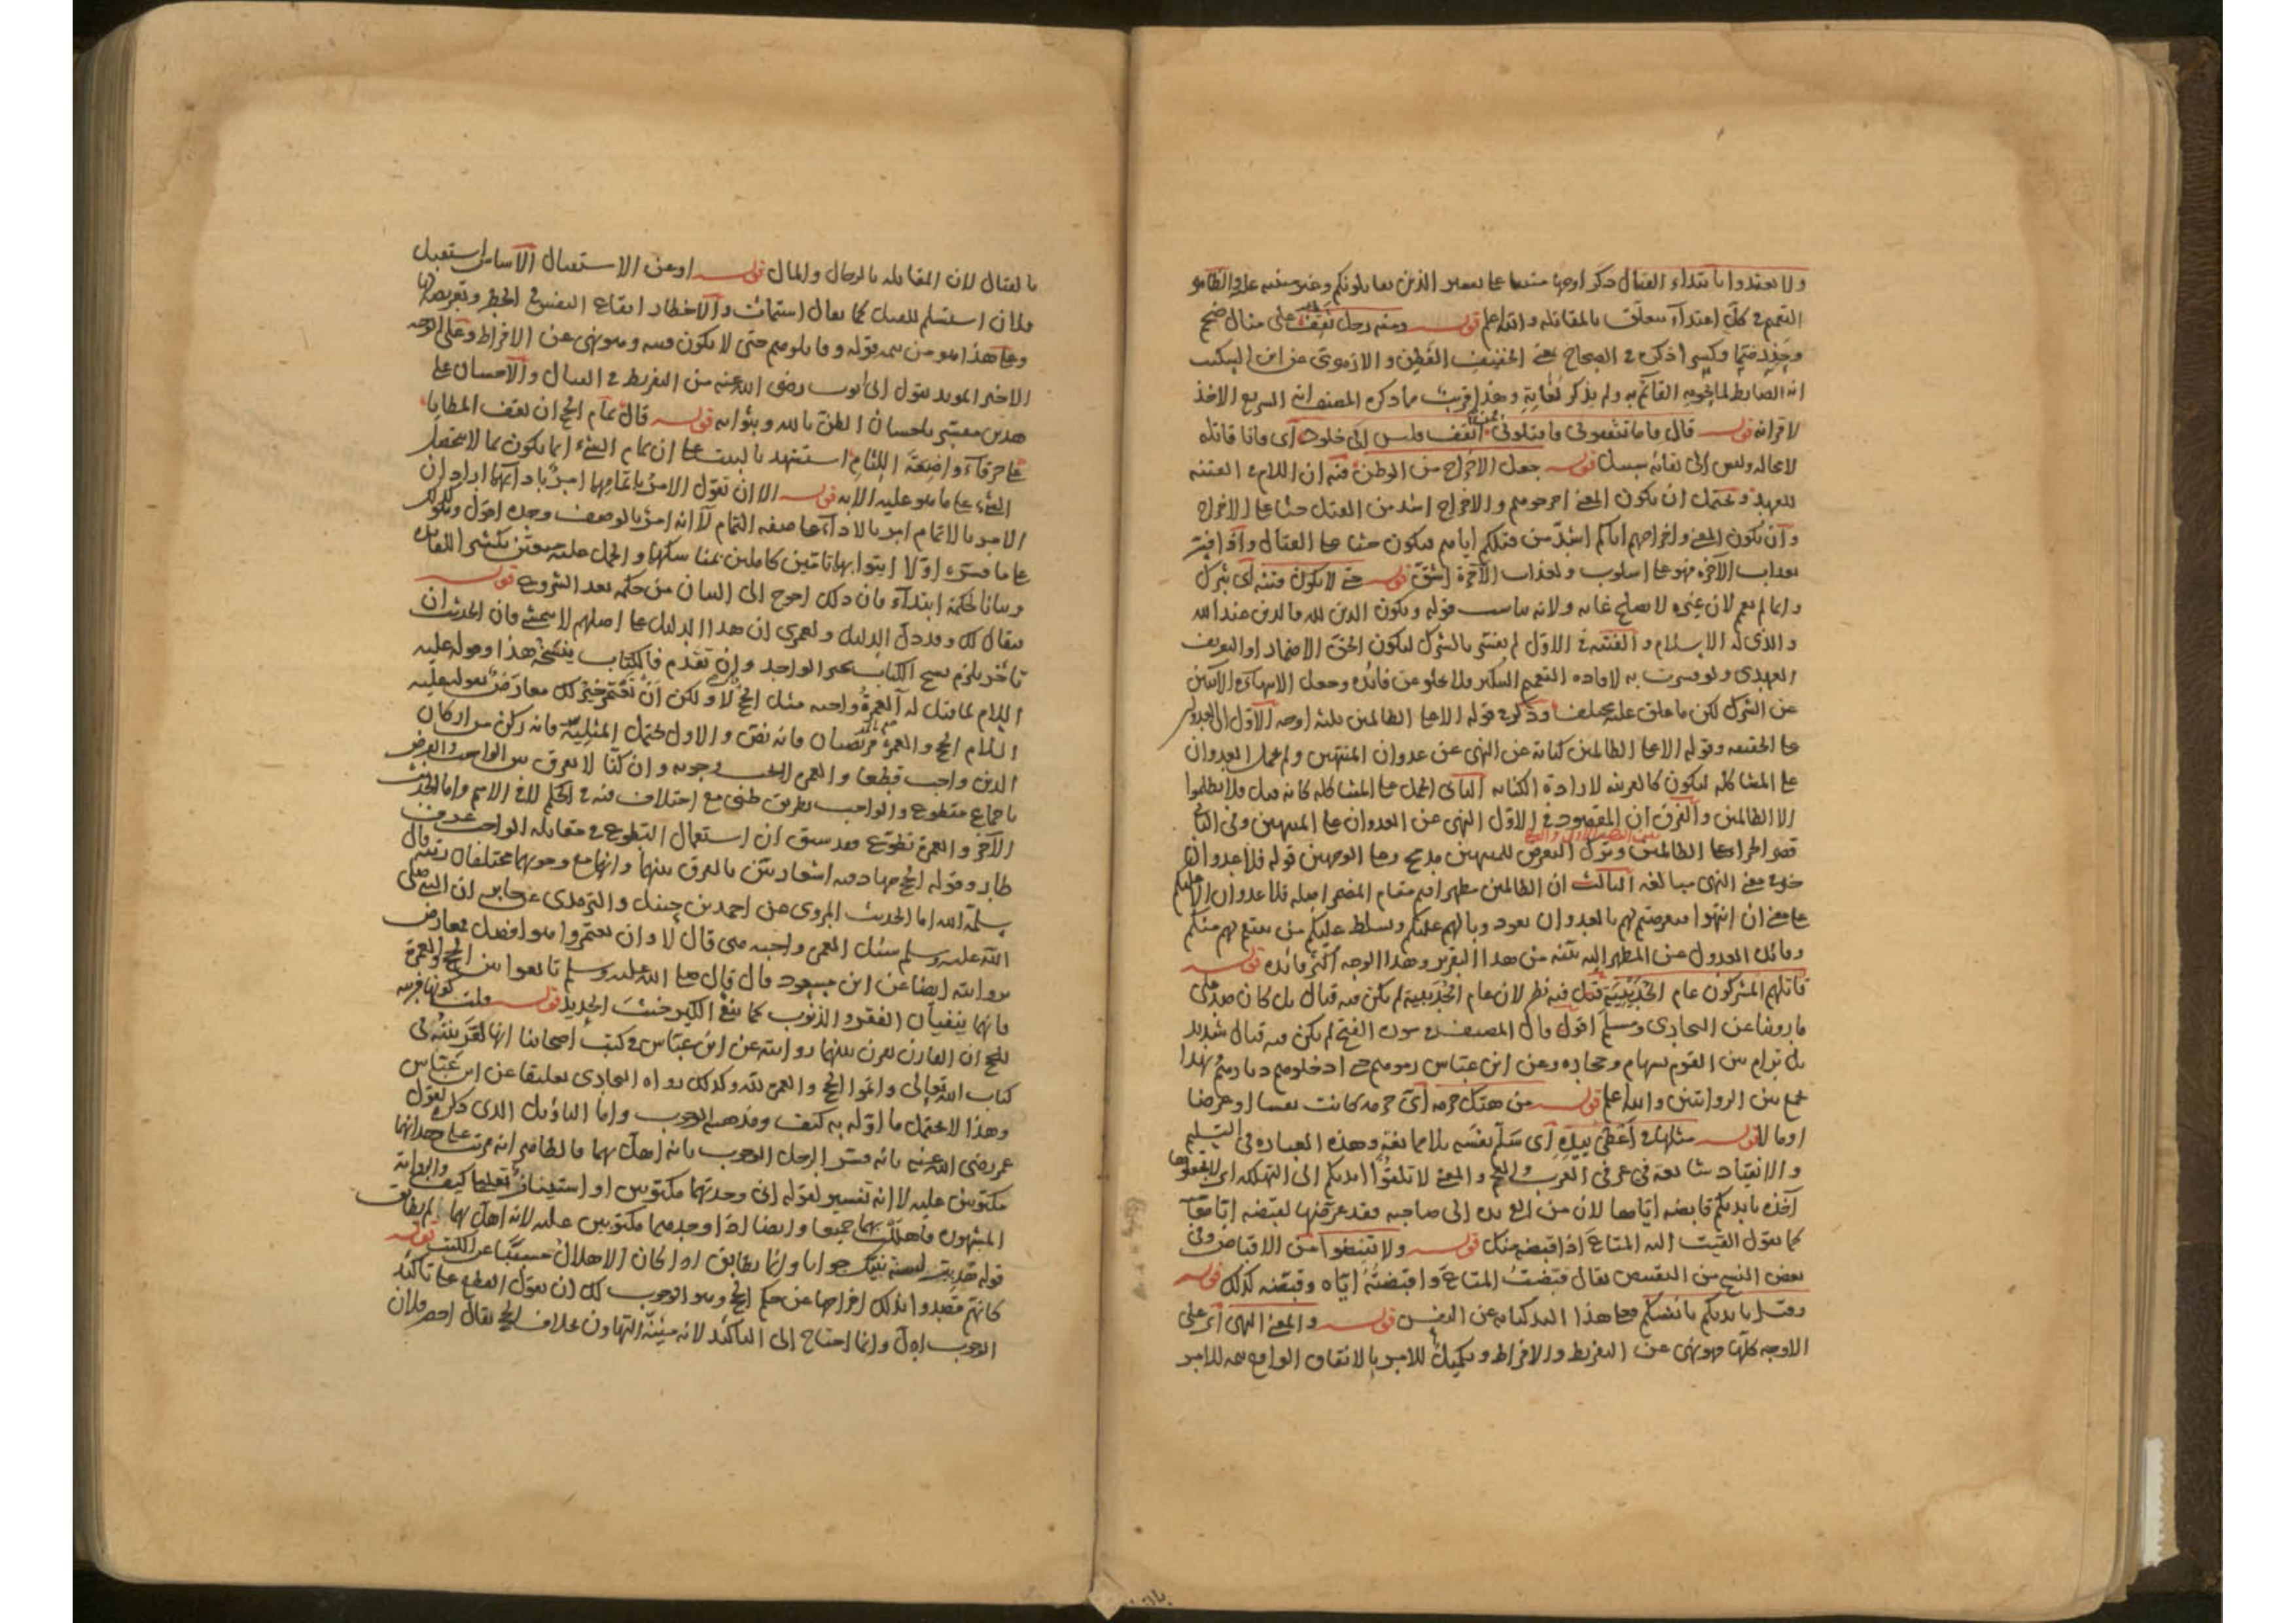 ولا تعتدوا بابتداء القتال ذكر اوجها منها على تفسير الذين يقاتلونكم وغير مبنية عليه والظاهر
التعميم في كل اعتداء يتعلق بالمقاتلة والله اعلم قوله ومنه رجل ثقف على مثال ضخم
وحذر ضمًا وكسرا ذكره في الصحاح بمعنى الخفيف الفطن والازهري عن ابن السكيت
انه الضابط لما يحويه القائم به ولم يذكر لغاته وهذا قريب مما ذكره المصنف انه السريع الاخذ
لاقرانه قوله قال فاما تثقفوني فاقتلوني فمن اثقف فليس الى خلود اى فانا قاتله
لا محالة وليس الى بقائه سبيل قوله جعل الاخراج من الوطن فيه ان اللام في الفتنة
للعهد ويحتمل ان يكون المعنى اخرجوهم والاخراج اشد من القتل حثا على الاخراج
وان يكون المعنى واخراجهم اياكم اشد من قتلكم اياهم فيكون حثا على القتال واذا فسر
بعذاب الآخرة فهو على اسلوب ولعذاب الآخرة اشق قوله حتى لا تكون فتنة اى شرك
وانما لم يعم لان غيره لا يصلح غاية ولانه يناسب قوله ويكون الدين لله فالدين عند الله
والذي له الاسلام والفتنة في الاول لم يفسر بالشرك ليكون الحق الاضمار او التعريف
العهدي ولو فسرت به لافاده التعميم السكير فلا يخلو عن فائدة وجعل الانتهاء في الآيتين
عن الشرك لكن ما علق عليه مختلف وذكر في قوله الا على الظالمين ثلثة اوجه الاول ان العدوان
على الحقيقة وقوله الا على الظالمين كناية عن النهي عن عدوان المنتهين ولم يحمل العدوان
على المشاكلة ليكون كالقرينة لارادة الكناية الثاني الحمل على المشاكلة كانه قيل فلا تظلموا
الا الظالمين والفرق ان المقصود في الاول النهي عن العدوان على المنتهين وفي الثاني
قصر الجزاء على الظالمين وترك التعرض للمنتهين مدمج وعلى الوجهين قوله فلا عدوان
خبر في معنى النهي مبالغة الثالث ان الظالمين مظهر اقيم مقام المضمر اصله فلا عدوان الا عليكم
على معنى ان انتهوا فتعرضتم لهم بالعدوان يعود وباله عليكم ونسلط عليكم من ينتقم لهم منكم
وفائدة العدول عن المظهر اليه بينة من هذا التقرير وهذا الوجه اكثر فائدة قوله
قاتلهم المشركون عام الحديبية قيل فيه نظر لان عام الحديبية لم يكن فيه قتال بل كان صد على
ما روينا عن البخاري ومسلم اقول قال المصنف في سورة الفتح لم يكن فيه قتال شديد
بل ترام من القوم بسهام وحجارة وعن ابن عباس رموهم حتى ادخلوهم ديارهم فبهذا
يجمع بين الروايتين والله اعلم قوله من هتك حرمة اى حرمة كانت نفسا او عرضا
او مالا قوله مثلها في اعطى بيده اى سلم نفسه بلا ممانعة وهذه العبارة في التسليم
والانقياد شائعة في عرفي العرب والعجم والمعنى لا تلقوا ايديكم الى التهلكة اى لا تجعلوها
آخذة بايديكم قابضة اياها لان من القى يده الى صاحبه فقد عرضها لقبضه اياها
كما تقول القيت اليه المتاع اذا قبضه منك قوله ولا تقبضوا من الاقباض وفي
بعض النسخ من التقبيض يقال قبضت المتاع واقبضته اياه وقبضته كذلك قوله
وقيل بايديكم بانفسكم فعلى هذا اليد كناية عن النفس قوله والمعنى النهي اى على
الاوجه كلها فهو نهى عن التفريط والافراط وتكميل للامر بالانفاق الواقع تتمة للامر
بالقتال لان المقاتلة بالرجال والمال قوله او عن الاستقتال الاساس استقتل
فلان استسلم للقتل كما يقال استمات والاخطار ايقاع النفس في الخطر وتعريضها
وعلى هذا هو من تتمة قوله وقاتلوهم حتى لا تكون فتنة وهو نهى عن الافراط وعلى الوجه
الاخير المويد بقول ابي ايوب رضى الله عنه من التفريط في القتال والاحسان على
هذين مفسر باحسان الظن بالله وبثوابه قوله قال تمام الحج ان تقف المطايا
على خرقاء واضعة اللثام استشهد بالبيت على ان تمام الشيء انما يكون بما لا يستعمل
الشيء على ما هو عليه الا به قوله الا ان نقول الامر باتمامهما امر بادائهما اراد ان
الامر بالاتمام امر بالاداء على صفة التمام لا انه امر بالوصف وحده اقول ويكون كذلك
على ما فسره اولا ايتوا بهما تامين كاملين بمناسكهما والحمل عليه متعين تكثيرا للفائدة
وبيانا لحكمه ابتداء فان ذلك احوج الى البيان من حكمه بعد الشروع قوله
فيقال لك وقد دل الدليل ولعمري ان هذا الدليل على اصلهم لا يتمشى فان الحديث ان
تاخر يلزم نسخ الكتاب بخبر الواحد وان تقدم فالكتاب ينسخه هذا وقوله عليه
السلام لما قيل له العمرة واجبة مثل الحج لا ولكن ان تعتمر خير لك معارض بقوله عليه
السلام الحج والعمرة فريضتان فانه نص والاول يحتمل المثلية فانه ركن من اركان
الدين واجب قطعا والعمرة ليست وجوبه وان كنا لا نفرق بين الواجب والفرض
باجماع مقطوع والواجب بطريق ظني مع اختلاف فيه في الحكم لا في الاسم واما الحديث
الآخر والعمرة تطوع فقد سبق ان استعمال التطوع في مقابلة الواجب عرف
طار وقوله الحج جهاد فيه اشعار بين بالفرق بينهما وانهما مع وجوبهما مختلفان رتبة قال
سلمه الله اما الحديث المروي عن احمد بن حنبل والترمذي عن جابر ان النبي صلى
الله عليه وسلم سئل العمرة واجبة هي قال لا وان تعتمروا هو افضل فمعارض
بروايته ايضا عن ابن مسعود قال قال صلى الله عليه وسلم تابعوا بين الحج والعمرة
فانهما ينفيان الفقر والذنوب كما ينفي الكير خبث الحديد قوله فليست كونها قرينة
للحج ان القارن يقرن بينهما روايته عن ابن عباس في كتب اصحابنا انها لقرينته في
كتاب الله تعالى واتموا الحج والعمرة لله وكذلك رواه البخاري تعليقا عن ابن عباس
وهذا لا يحتمل ما اوله به كيف ومذهبه الوجوب واما التاويل الذي ذكره لقول
عمر رضى الله عنه بانه فسر الرجل الوجوب بانه اهل بهما فالظاهر انه مرتب على وجدانهما
مكتوبين عليه لا انه تفسير لقوله انى وجدتهما مكتوبين او استيناف تعليل كيف والرواية
المشهورة فاهللت بهما جميعا وايضا اذا وجدهما مكتوبين عليه لانه اهل بهما لم يطابق
قوله هديت لسنة نبيك جوابا وانما يطابق اذا كان الاهلال مسببا عن الكتب قوله
كانهم قصدوا بذلك اخراجها عن حكم الحج وهو الوجوب لك ان تقول القطع على تاكيد
الوجوب ادل وانما احتاج الى التاكيد لانه مظنة التهاون بخلاف الحج يقال احصر فلان